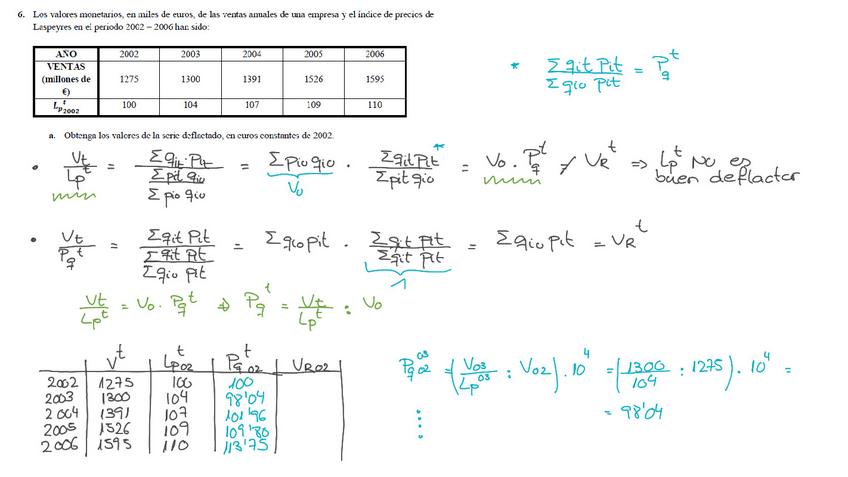 6. Los valores monetarios, en miles de euros, de las ventas anuales de una empresa y el índice de precios de
Laspeyres en el periodo 2002 – 2006 han sido:
AÑO 2002 2003 2004 2005 2006
VENTAS (millones de €) 1275 1300 1391 1526 1595
Lp^t_2002 100 104 107 109 110
* Σqit Pit / Σqio Pit = Pq^t
a. Obtenga los valores de la serie deflactado, en euros constantes de 2002.
• Vt / Lp^t = Σqit·Pit / (Σpit qio / Σpio qio) = Σpio qio · Σqit Pit / Σpit qio * = Vo · Pq^t ≠ VR^t ⇒ Lp^t NO es
buen deflactor
Vo
• Vt / Pq^t = Σqit Pit / (Σqit Pit / Σqio Pit) = Σqio pit · Σqit Pit / Σqit Pit = Σqio Pit = VR^t
1
Vt / Lp^t = Vo · Pq^t ⇒ Pq^t = Vt / Lp^t : Vo
V^t Lp02^t Pq02^t VR02
2002 1275 100 100
2003 1300 104 98'04
2004 1391 107 101'96
2005 1526 109 109'80
2006 1595 110 113'75
Pq02^03 = (V03 / Lp^03 : V02) · 10^4 = (1300 / 104 : 1275) · 10^4 =
= 98'04